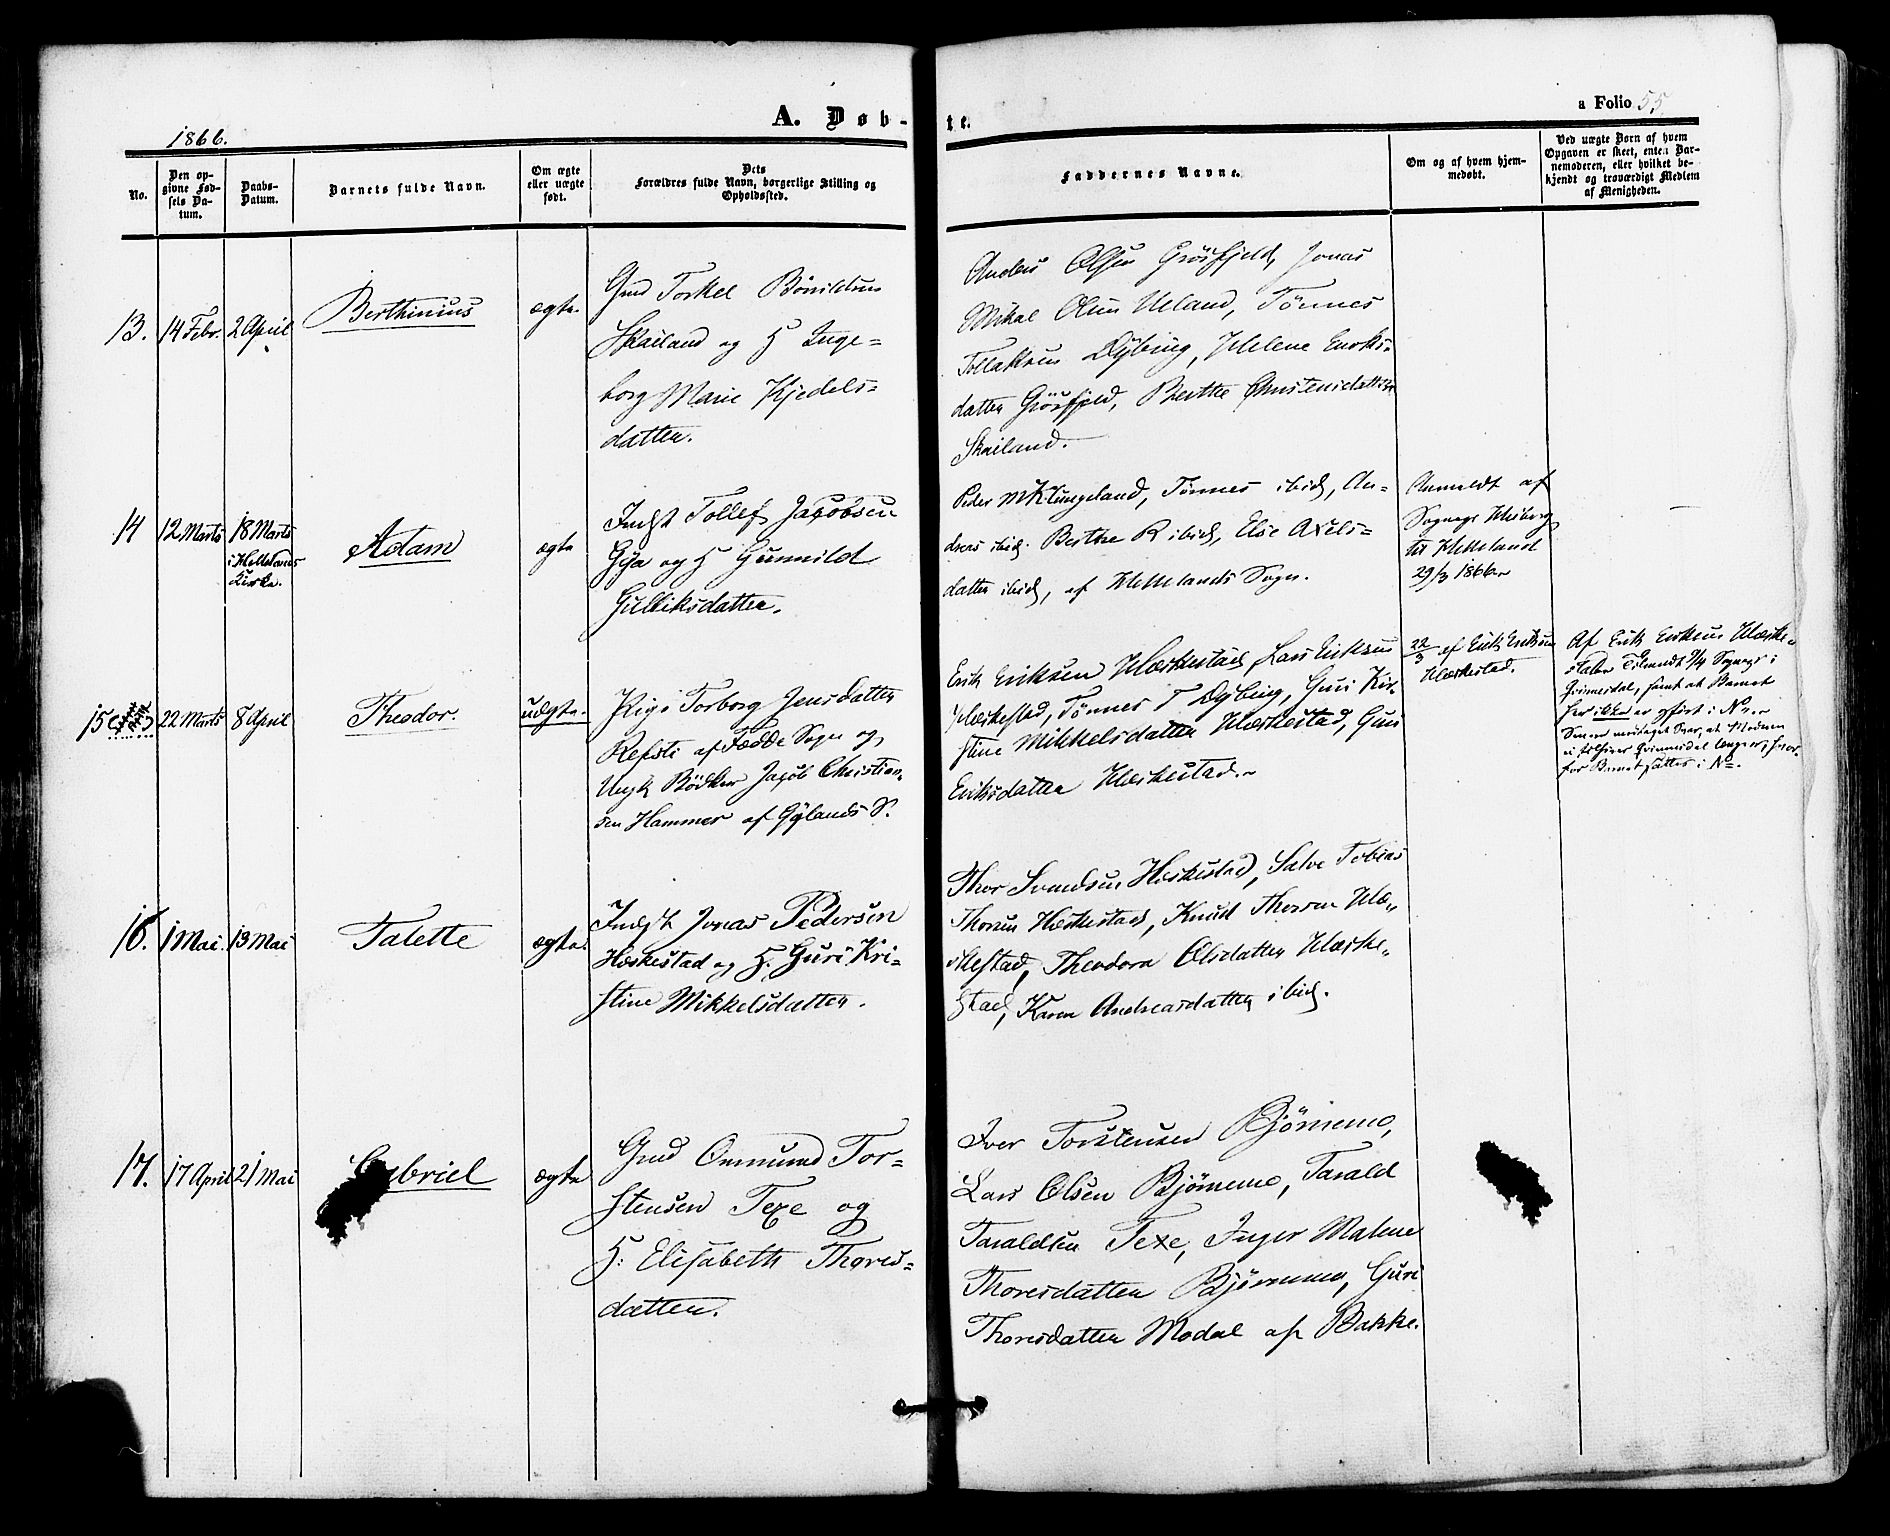 1866.
A. Døb-
te.
a Folio 55
No.
Den op-
givne Fød-
sels Da-
tum.
Daabs-
Datum.
Barnets fulde Navn.
Om ægte
eller uægte
født.
Dets
Forældres fulde Navn, borgerlige Stilling og
Opholdssted.
Faddernes Navne.
Om og af hvem hjem-
medøbt.
Ved uægte Børn af hvem
Opgaven er skeet, enten Bar-
nemoderen, eller hvilket be-
kjendt og troværdigt Medlem
af Menigheden.
13.
14 Febr.
2 April
Berthinius
ægte.
Gmd Torkel
Skailand og H Inge-
borg Marie Kjedels-
datter.
Anders Olsen Grøsfjeld, Jonas
Mikal Olsen Ueland, Tønnes
Tollaksen Dybing, Helene Enoks-
datter Grøsfjeld, Berthe Christensdatter
Skailand.
14
12 Marts
18 Marts
i Hellelands
Kirke.
Adam
ægte
Indst Tollef Jacobsen
Gya og H Gunnild
Gulliksdatter.
Peder M Klungeland, Tønnes ibid, An-
dreas ibid. Berthe R ibid, Else Axels-
datter ibid, af Hellelands Sogn.
Anmeldt af
Sognepr
til Helleland
29/3 1866
15
22 Marts
8 April
Theodor.
uægte.
Pige Torborg Jensdatter
Refsti af Fædde Sogn og
Ungk Bødker Jacob Christian-
sen Hammer af Gylands S.
Erik Eriksen Hæskestad, Lars Eriksen
Hæskestad, Tønnes T Dybing, Guri Kir-
stine Mikkelsdatter Hæskestad, Guri
Eriksdatter Hæskestad.
22/3 af Erik Eriksen
Hæskestad.
Af Erik Eriksen Hæske-
stad. Tilmeldt 9/4 Sognepr i
Qvinnesdal, samt at Barnet
her ikke er opført i No
modtaget Svar, at Moderen
ei tilhører Qvinnesdal længer, hvor-
for Barnet sættes i No.
16.
1 Mai.
13 Mai
Talette
ægte.
Indst Jonas Pedersen
Hæskestad og H. Guri Kri-
stine Mikkelsdatter.
Thor Svendsen Hæskestad, Salve Tobias
Thorsen Hæskestad, Knud Thorsen Hæ-
skestad, Theodora Olsdatter Hæske-
stad, Karen Andreasdatter ibid.
17.
17 April
21 Mai
Gabriel
ægte
Gmd Ommund Tor-
stensen Texe og
H. Elisabeth Thores-
datter.
Iver Torstensen Bjørnemo,
Lars Olsen Bjørnemo, Tarald
Taraldsen Texe, Inger Malene
Thoresdatter Bjørnemo, Guri
Thoresdatter Modal af Bakke.